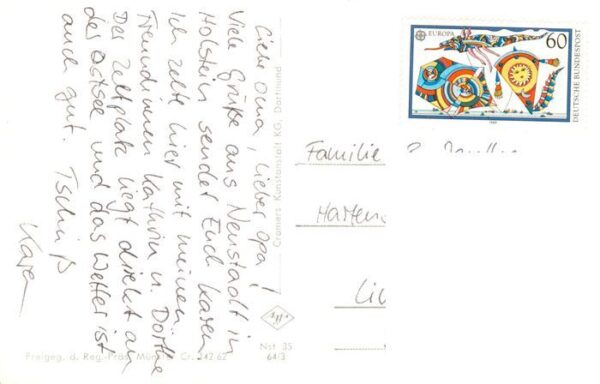 Liebe Oma, lieber Opa!
Viele Grüße aus Neustadt in
Holstein sendet Euch Karen.
Ich zelte hier mit meinen
Freundinnen Kathrin u. Dörthe
Der Zeltplatz liegt direkt an
der Ostsee und das Wetter ist
auch gut. Tschüß
Karen
Cramers Kunstanstalt KG, Dortmund
EUROPA 60
DEUTSCHE BUNDESPOST
1989
Familie
Freigeg. d. Reg.-Präs. Münster Cr. 342 62
Nst 35
64/3